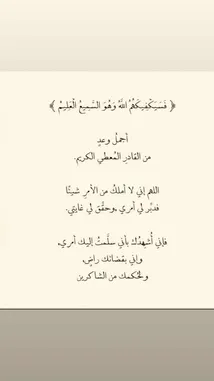 ﴿ فَسَيَكْفِيكَهُمُ اللَّهُ وَهُوَ السَّمِيعُ الْعَلِيمُ ﴾
أجملُ وعدٍ
من القادرِ المُعطي الكريم.
اللهم إني لا أملكُ من الأمرِ شيئًا
فدبِّر لي أمري ,وحقِّق لي غايتي.
فإني أُشهِدُك بأني سلَّمتُ إليك أمري,
وإني بقضائك راضٍ,
ولحُكمك من الشاكرين